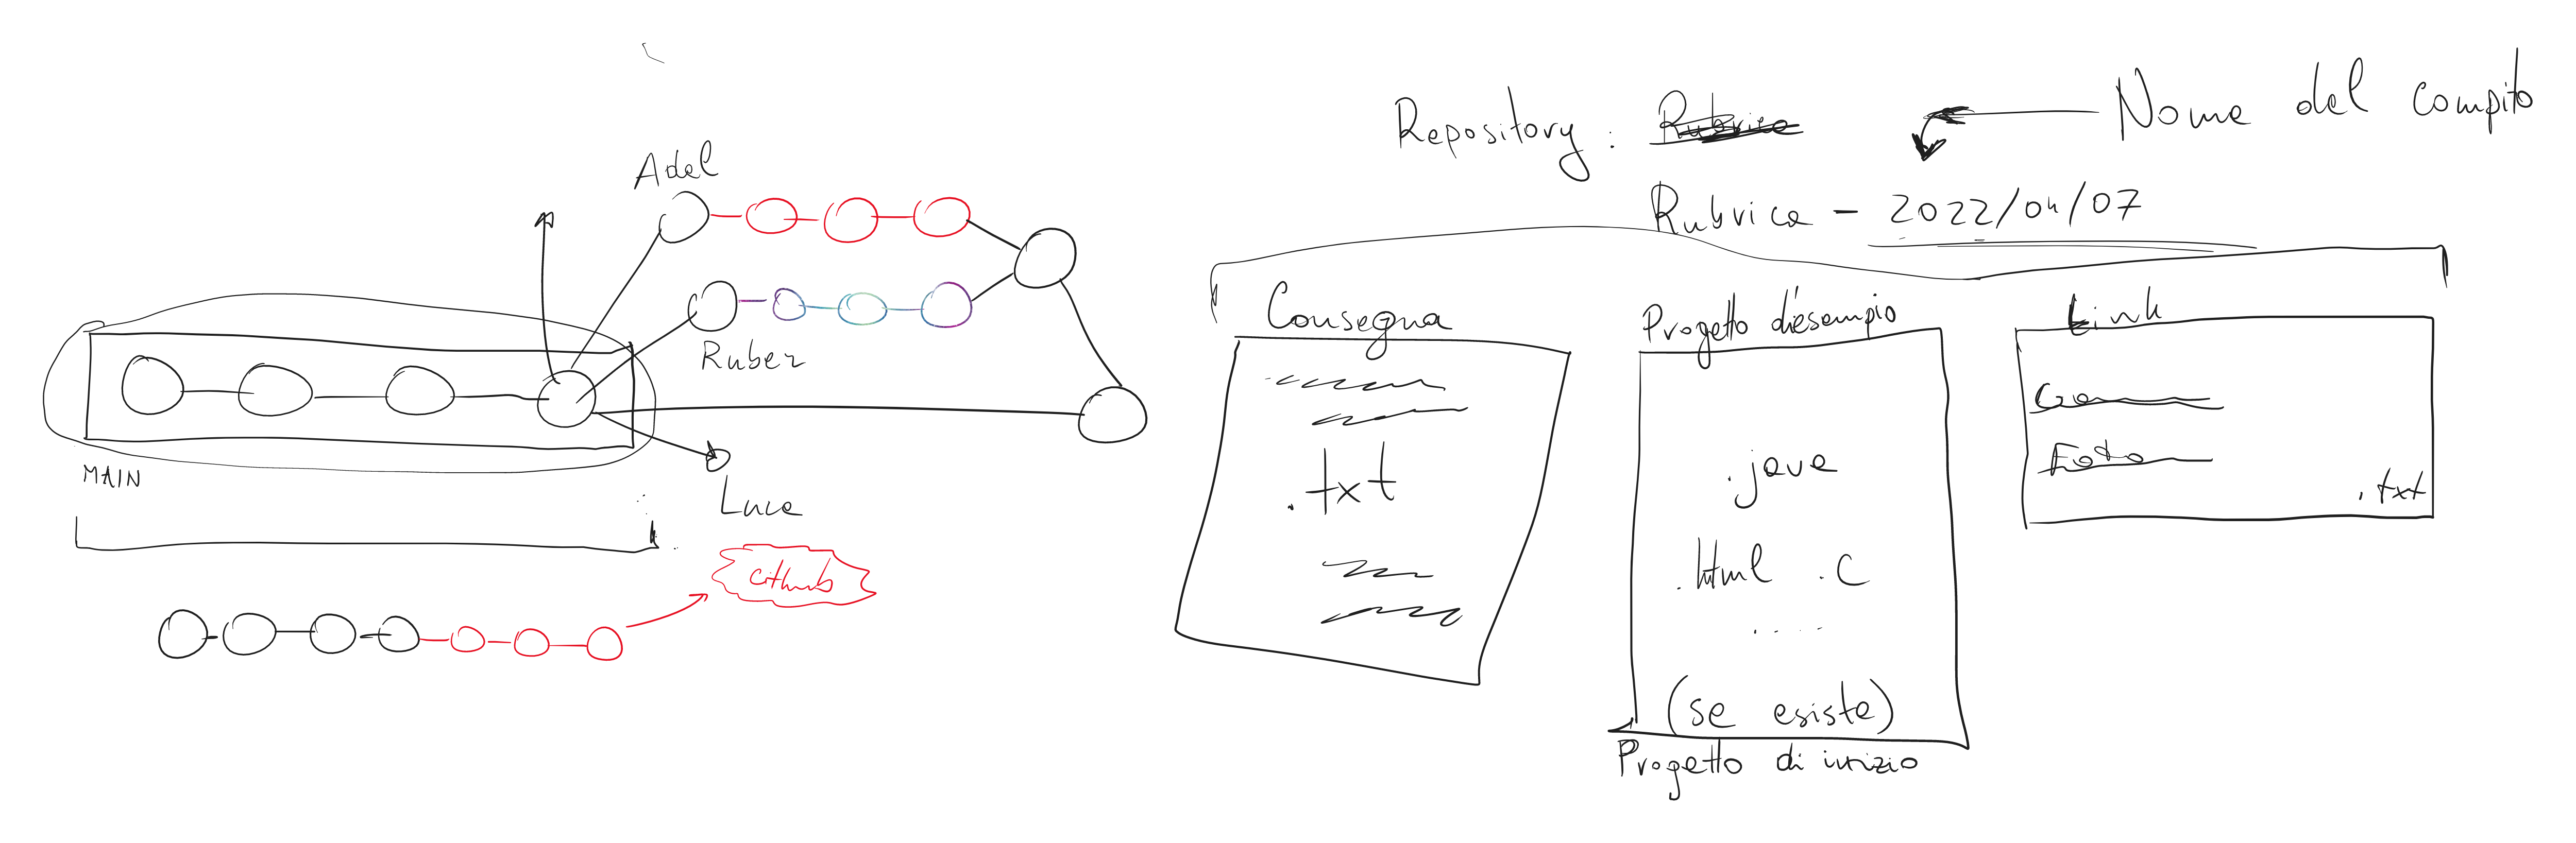 Adel
Ruben
MAIN
Luca
Github
Repository:
Nome del compito
Rubrica - 2022/04/07
Consegna
.txt
Progetto d'esempio
.java
.html .c
....
(se esiste)
Progetto di inizio
Link
Foto
.txt